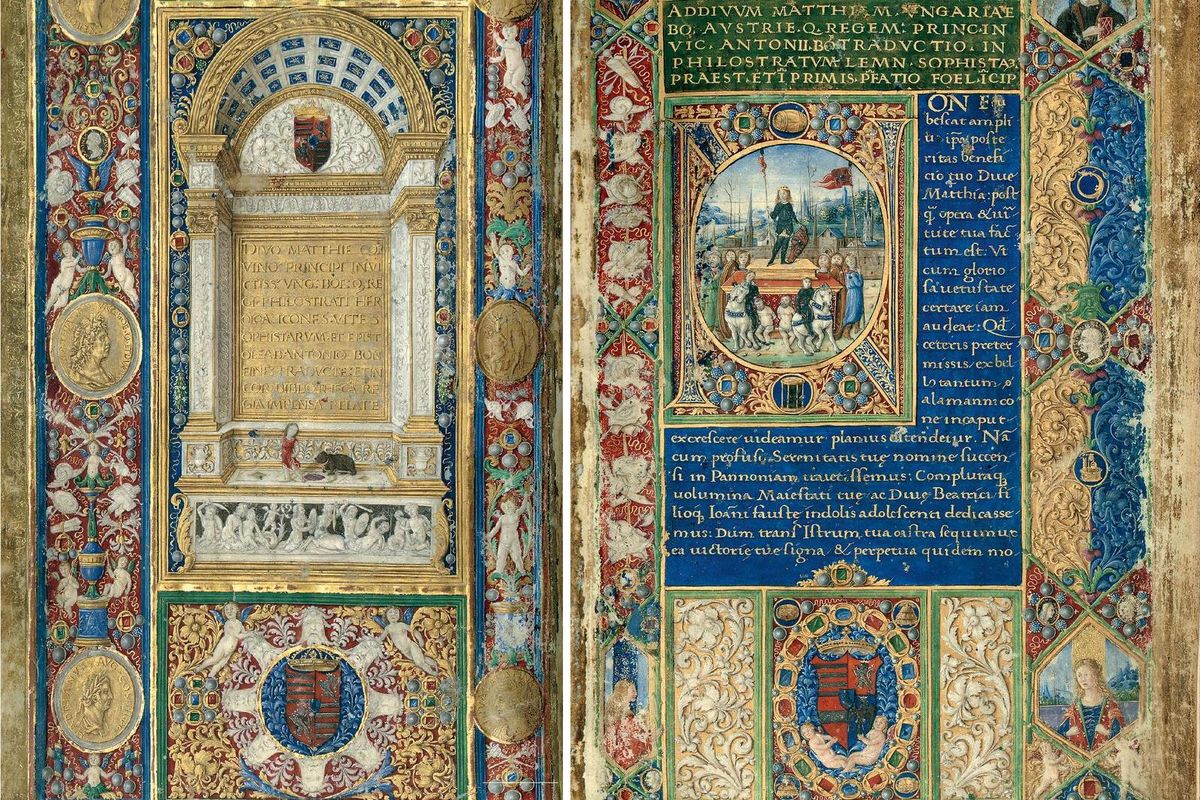 DIVO MATTHIE COR
VINO PRINCIPI INVI
PHILOSTRATI HER
ICONES VITE S
OPHISTARVM ET EPIST
OLE AB ANTONIO BON
FINE TRADVCTE ET IN
BIBLIOTHECA RE
GIA IMPENSA
AD DIVVM MATTHIAM VNGARIAE
BO. AVSTRIE.Q. REGEM: PRINC.IN
VIC. ANTONII.BO TRADVCTIO. IN
PHILOSTRATVM LEMN. SOPHISTA
PRAEST. ET Ī PRIMIS. P̄FATIO FOEL. ĪCIP
ON Eru
bescat ampli
us ip̄a poste
ritas benefi
cio tuo Diue
Matthia: post
q̄ opera & uir
tute tua fac
tum est: Vt
cum glorio
sa uetustate
certare iam
audeat: Qd
ceteris preter
missis, ex bel
lo tantum
alamannico
ne in caput
excrescere uideamur planius ostendetur. Nā
cum profuso Serenitatis tuę nomine succen
si in Pannoniam
uolumina Maiestati tue ac Diue Beatrici fi
lioq, Ioāni fauste indolis adolescenti dedicasse
mus: Dum trans Istrum tua castra sequimur
ea uictorie tue signa & perpetua quidem mo